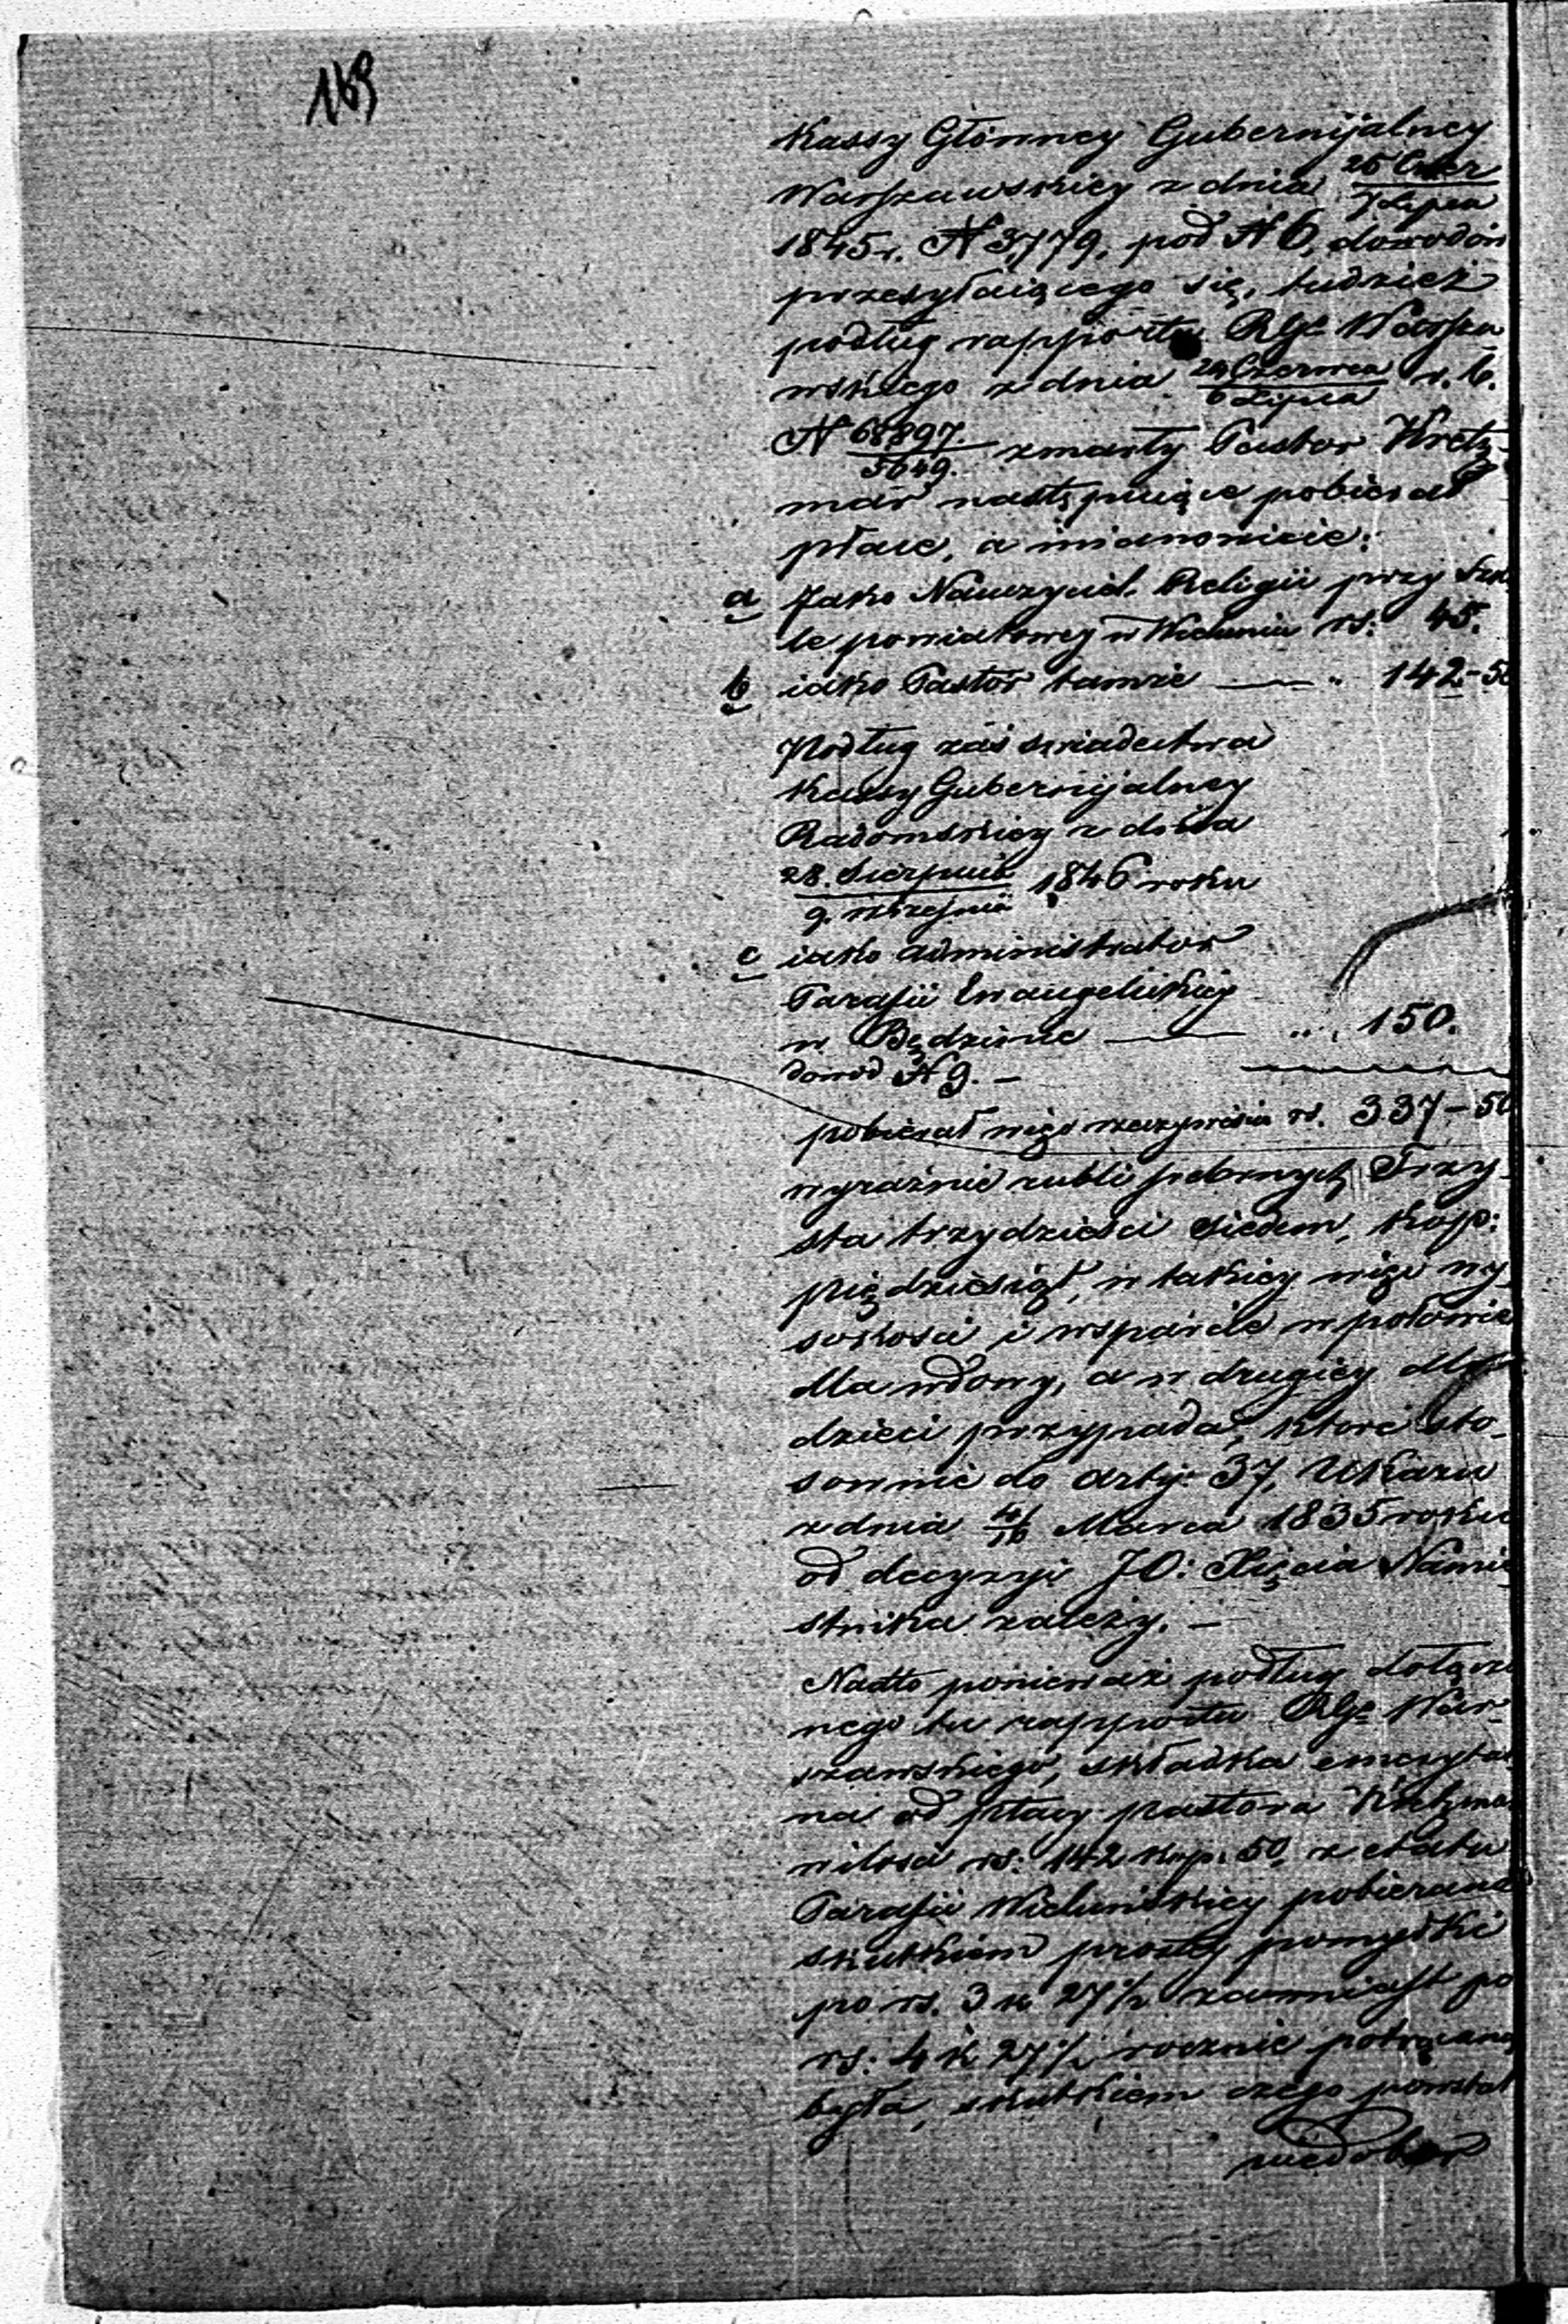 169
Kassy Główney Gubernijalney
Warszawskiey z dnia 25 Czer / 7 Lipca
1845 r. N 3,779, pod N 6, dowodów
przesyłaiącego się, tudzież
podług rapportu RGo Warsza
wskiego z dnia 24 Czerwca / 6 Lipca r. b.
N 68897 / 5649. zmarły Pastor Kretz-
mar następuiące pobierał
płace, a mianowicie:
a Jako Nauczyciel Religii przy Szko
le powiatowey w Wieluniu rs: 45.
b iako Pastor tamże — „ 142-50
Podług zaś świadectwa
Kassy Gubernijalney
Radomskiey z dnia
28. Sierpnia / 9. września 1846 roku
c iako administrator
Parafii Ewangelickiey
w Będzinie — „ 150.
dowód N 9. —
pobierał więc rzeczywiście rs. 337-50
wyraźnie rubli srebrnych Trzy-
sta trzydzieści siedem, kop:
pięćdziesiąt, w takiey więc wy
sokości i wsparcie w połowie
dla wdowy, a w drugiey dla
dzieci przypada, które sto-
sownie do arty: 37, Ukazu
z dnia 4/16 Marca 1835 roku
od decyzyi JO: Xięcia Namie
stnika zależy. —
Nadto ponieważ podług dołączo
nego tu rapportu RGo War-
szawskiego, składka emerytal
na od płacy pastora Kretzmar
w ilości rs: 142 kop: 50, z etatu
Parafii Wieluńskiey pobierana
skutkiem prostey pomyłki
po rs. 3 k 27½ zamiast po
rs: 4 k 27½ rocznie potrącana
była, skutkiem czego powstał
niedobór